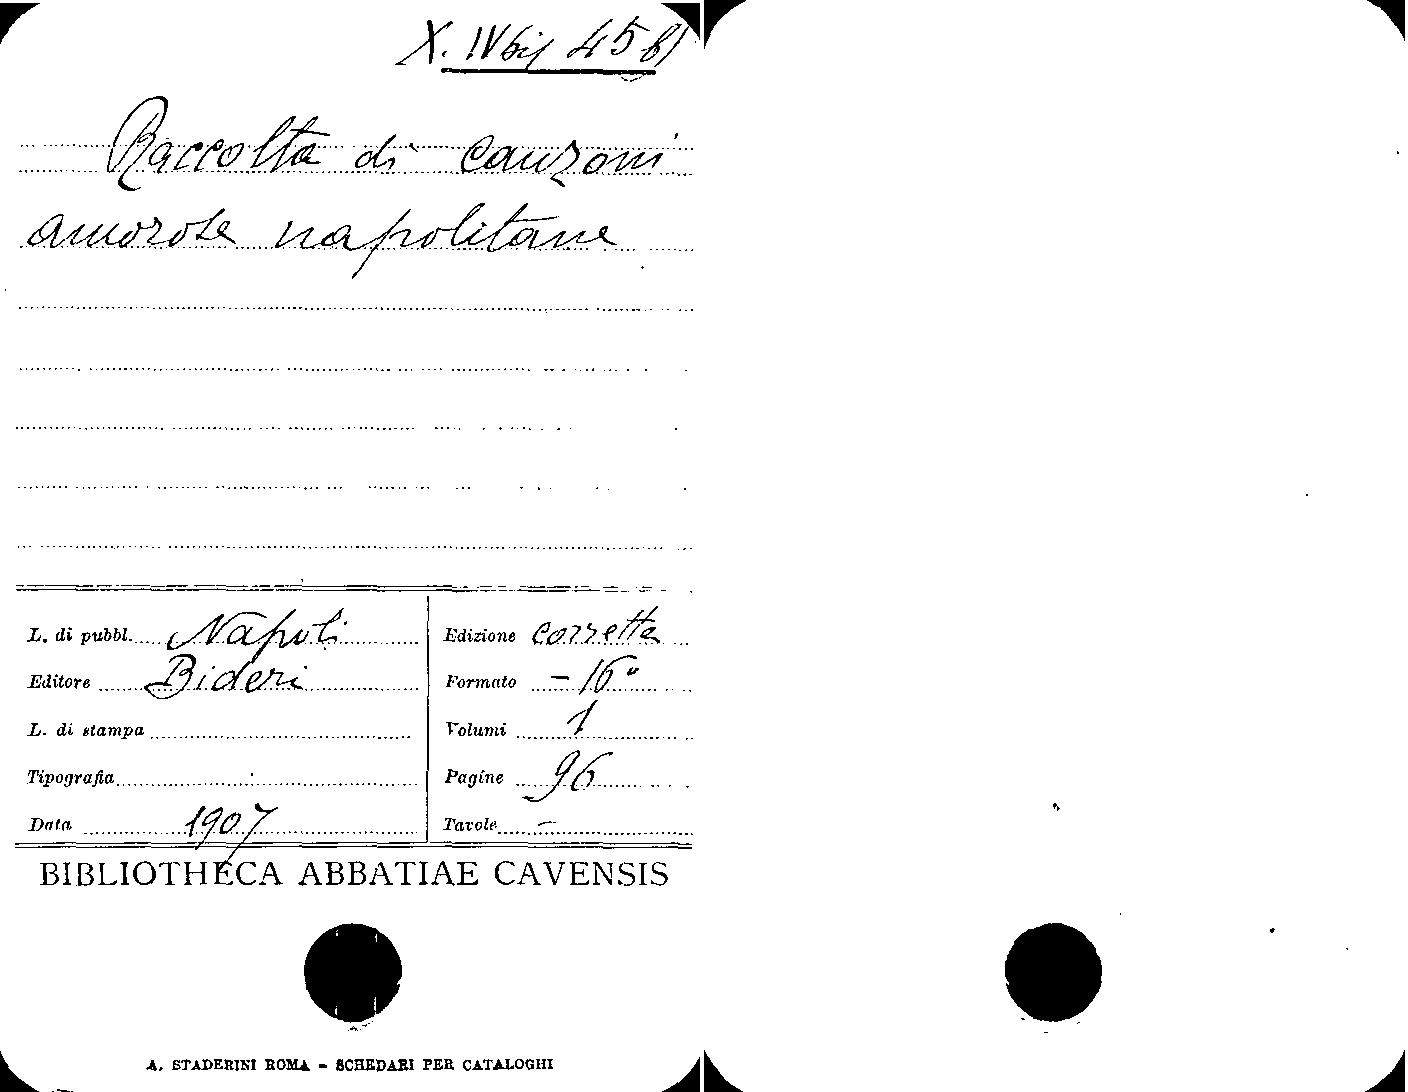 X. IV bis 45 b)
Raccolta di canzoni
amorose napolitane
L. di pubbl. Napoli
Editore Bideri
L. di stampa
Tipografia
Data 1907
Edizione corretta
Formato - 16°
Volumi 1
Pagine 96
Tavole -
BIBLIOTHECA ABBATIAE CAVENSIS
A. STADERINI ROMA - SCHEDARI PER CATALOGHI